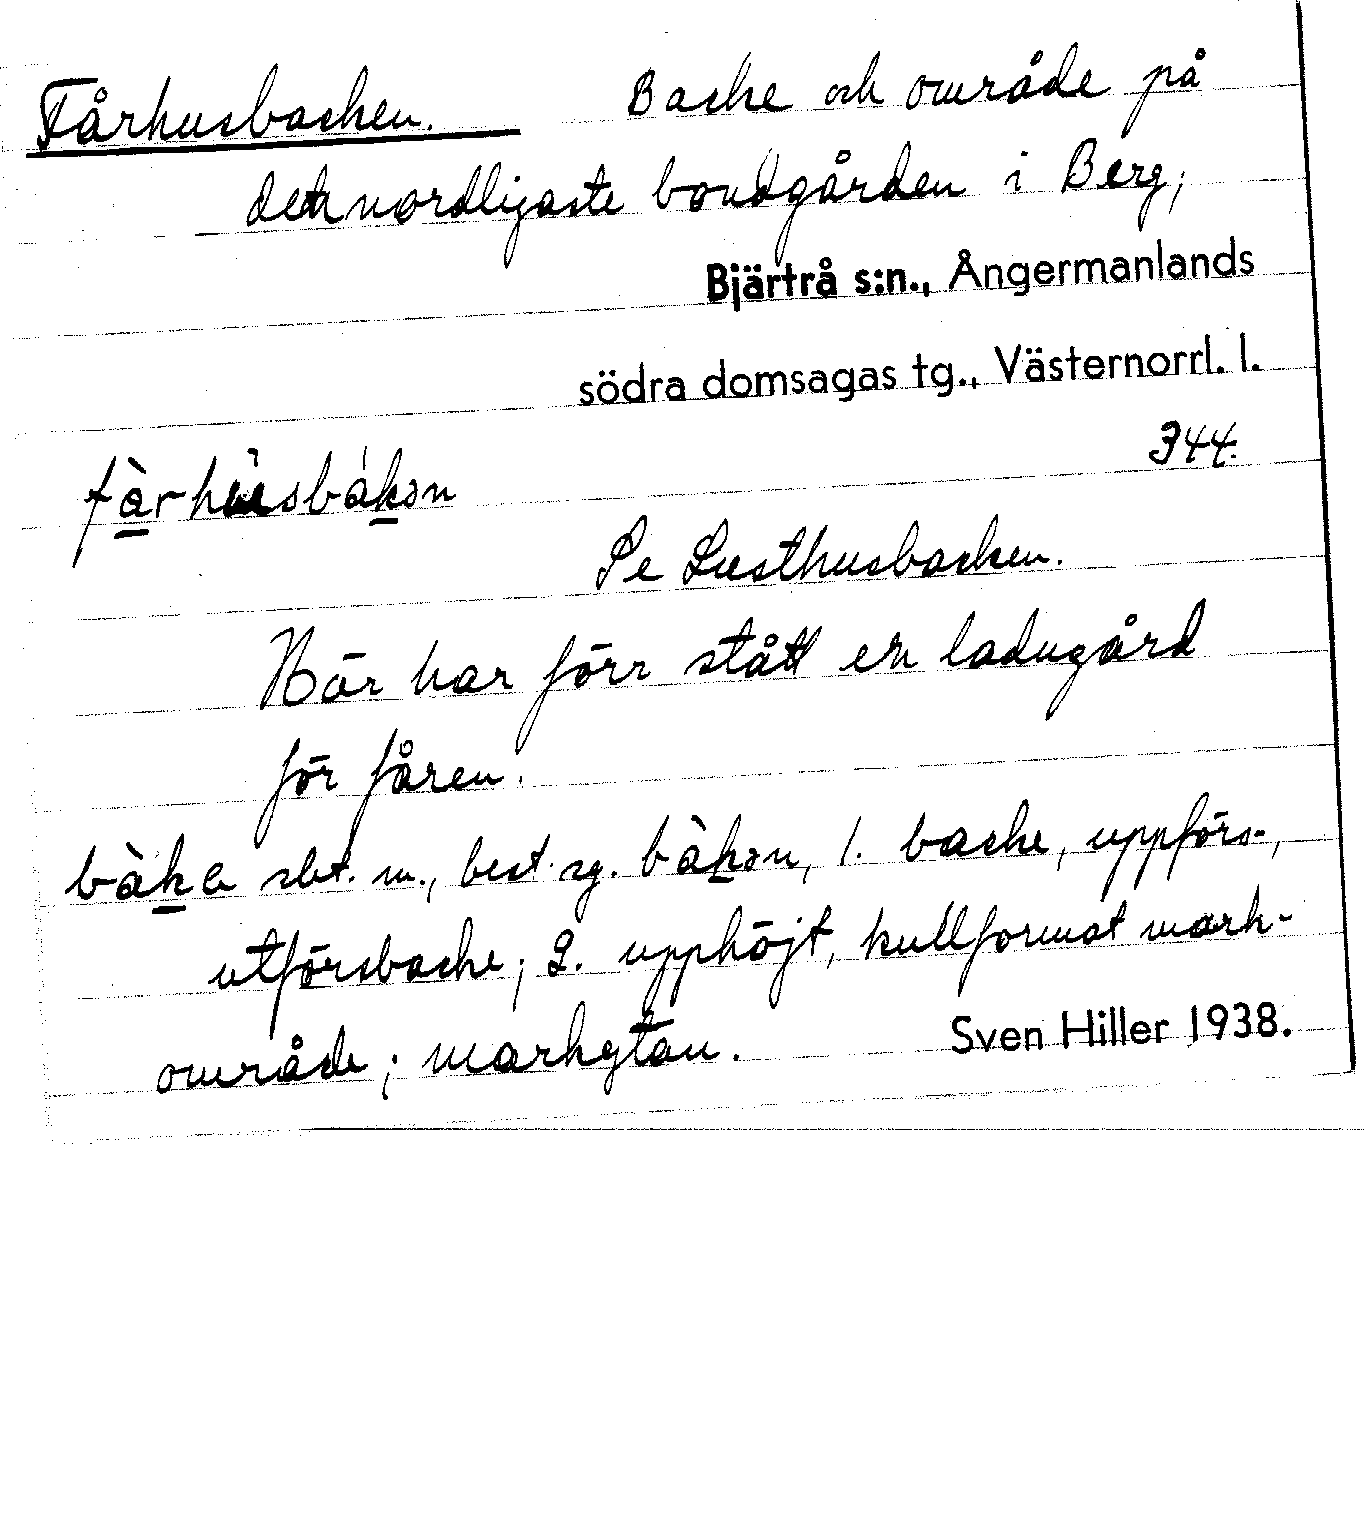 Fårhusbacken. Backe och område på
den nordligaste bondgården i Berg;
Bjärtrå s:n., Ångermanlands
södra domsagas tg., Västernorrl. l.
fàrhùsbákən 344.
Se Lusthusbacken.
Här har förr stått en ladugård
för fåren.
bàka sbt. m., best. sg. bàkən, 1. backe, uppförs-,
utförsbacke; 2. upphöjt, kullformat mark-
område; markytan. Sven Hiller 1938.